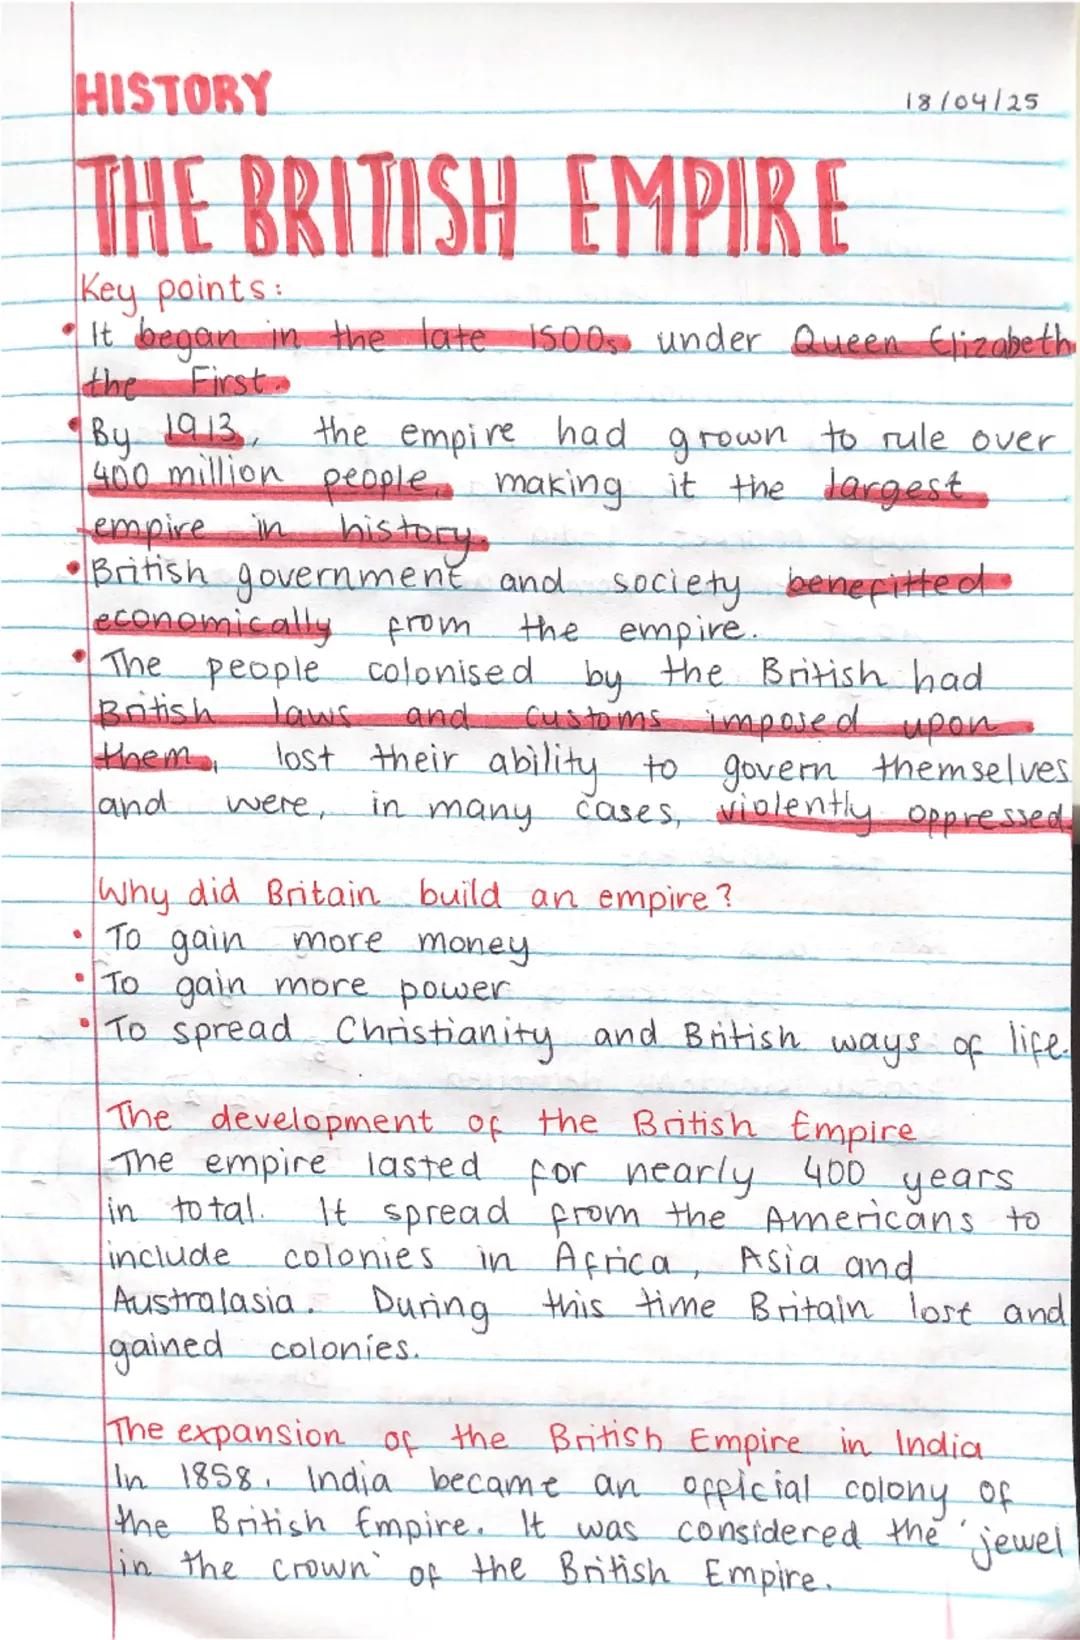 HISTORY
18/04/25
THE BRITISH EMPIRE
Key points:
• It began in the late 1500s under Queen Elizabeth
the First.
• By 1913, the empire had grown to rule over
400 million people, making it the largest
empire in history.
• British government and society benefitted
economically from the empire.
• The people colonised by the British had
British laws and customs imposed upon
them, lost their ability to govern themselves
and were, in many cases, violently oppressed
Why did Britain build an empire?
• To gain more money
• To gain more power
• To spread Christianity and British ways of life.
The development of the British Empire
The empire lasted for nearly 400 years
in total. It spread from the Americans to
include colonies in Africa, Asia and
Australasia. During this time Britain lost and
gained colonies.
The expansion of the British Empire in India
In 1858, India became an official colony of
the British Empire. It was considered the 'jewel
in the crown' of the British Empire.